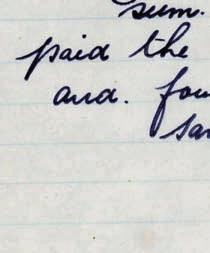 sum.
paid the
and. fou
sa